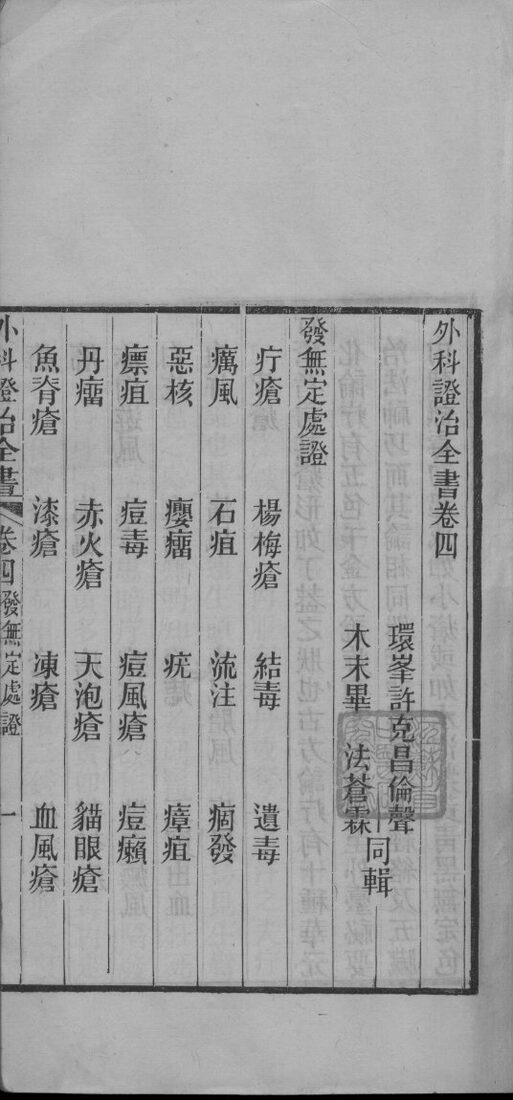 外科證治全書卷四
環峯許克昌倫聲
木末畢　法蒼霖
同輯
發無定處證
疔瘡　楊梅瘡　結毒　遺毒
癘風　石疽　流注　痼發
惡核　癭瘤　疣　瘴疽
瘭疽　痘毒　痘風瘡　痘癩
丹瘤　赤火瘡　天泡瘡　貓眼瘡
魚脊瘡　漆瘡　凍瘡　血風瘡
外科證治全書　卷四發無定處證　一